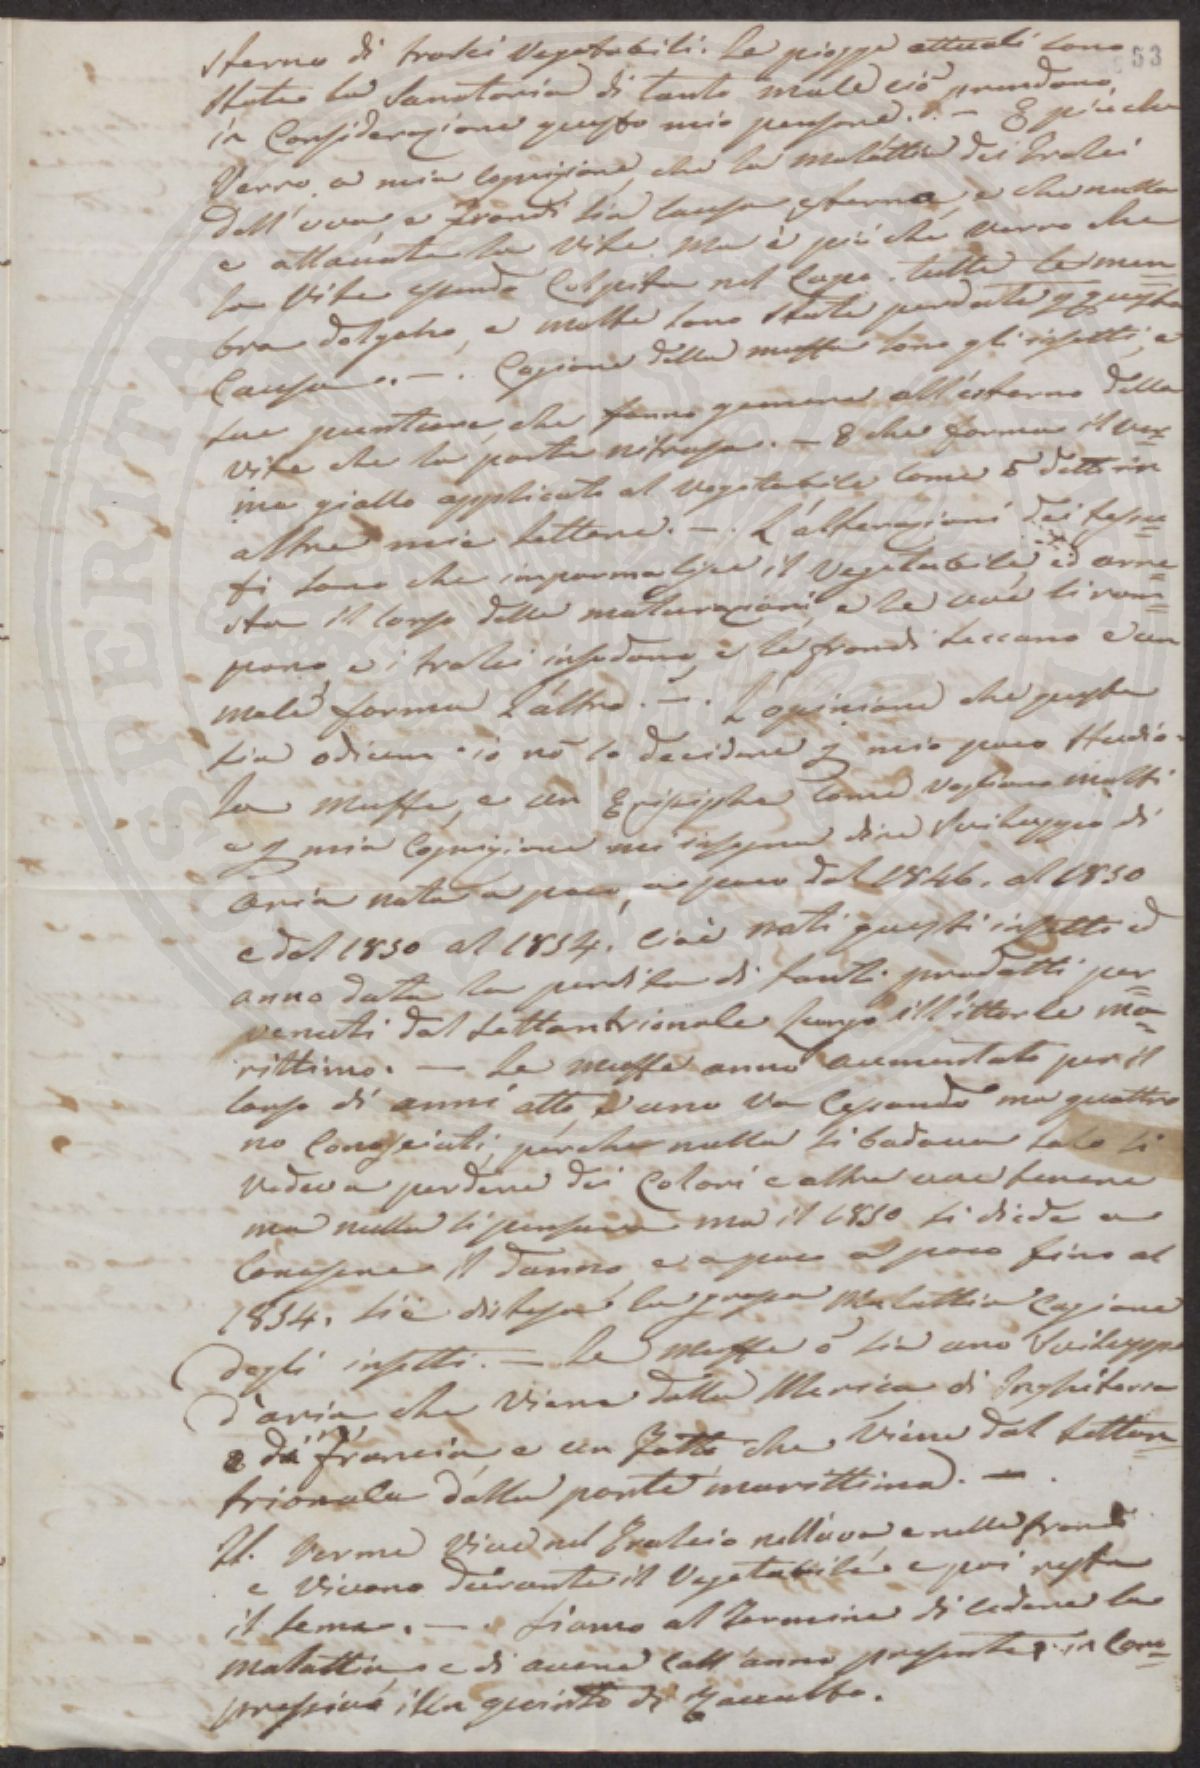 53
sterno di tralci vegetabili. Le piogge attuali sono
state la Sanatoria di tanto male ciò prendono
in Considerazione questo mio pensare. — E più che
Verro, a mia Cognizione, che la malattia dei Tralci
dell'uva, e frondi sia causa esterna, e che nulla
e attaccata la Vite. Ma è più che verro che
la Vite essendo Colpita nel Capo tutte le mem=
bra dolgono, e molte sono state perdute p questa
Causa. — Cagione della muffa sono gl'insetti, e
sue punture, che fanno gemere all'esterno della
vite che la parte nitrosa. — E che forma il ver=
me giallo applicato al vegetabile come ò detto in
altre mie lettere. — L'alterazioni dei tessu=
ti sono che informalisce il Vegetabile, ed arre=
sta il corso delle maturazioni, e le uve si rom=
pono, e i tralci insedono, e le frondi seccano e un
male forma l'altro. — L'opinione che questa
sia odium io nō lo decidere p mio poco studio.
La Muffa, e un Epizipha come vogliono molti
e p mia Cognizione mi insegna dire Sviluppo di
Aria nata a poco, a poco dal 1846. al 1850
e dal 1850 al 1854. cioè nati questi insetti ed
anno data la perdita di tanti prodotti per=
venuti dal settantrionale Lungo ill'ittorle ma=
rittimo. — Le muffe anno aumentato per il
corso di anni otto, e uno va Cessando ma quattro
no Conosciuti, perche nulla si badava solo si
vedeva perdere dei Colori e altre uve tenere
ma nulla si pensava ma il 1850 si diede a
Conoscere il danno, e a poco a poco fino al
1854. si è distesa la grossa Malattia Cagione
degli insetti. — Le Muffe ò sia uno Sviluppo
d'aria, che viene dalla Merica di Inghilterra
e di francia, e un fatto che viene dal settan=
trionale dalla parte marittima. —
Il Verme vive nel Tralcio nell'uva e nelle frondi
e vivono durante il Vegetabile e poi resta
il seme. — Siamo al Termine di cedere la
malattia e di avere Coll'anno presente in Com=
pressivo il quinto di Raccolto.